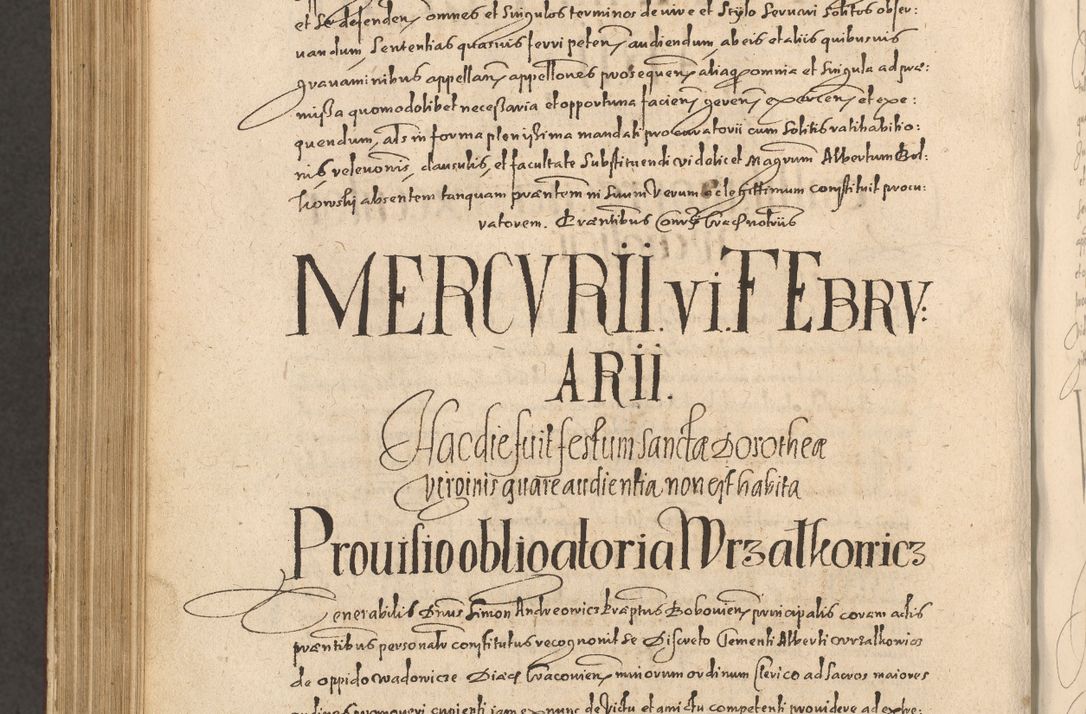 et se defenden, omnes et singulos terminos de iure et Stylo Servari Solitos obser:
vandum Sententias quasvis ferri peten, audiendum, ab eis et aliis quibusvis
gravaminibus appellan, appellones prosequen, aliaq omnia et singula ad præ:
missa quomodolibet necessaria et opportuna facien, geren, exercen, et exe:
quendum, als in forma plenissima mandati procuratorii cum Solitis ratihabitio:
nis, relevonis, clausulis, et facultate Substituendi videlicet Magrum Albertum Bel:
absentem tanquam præntem in Suum Verum ac legittimum constituit procu:
ratorem. Præntibus notriis
MERCVRII. VI. FEBRV:
ARII.
Hac die fuit festum sanctæ Dorotheæ
virginis quare audientia non est habita
Prouisio obligatoria Wrzalkowicz
Venerabilis Dnus Simon Andreowicz Præptus Bobovien, principalis coram actis
præntibus personalr constitutus recognovit se Discreto Clementi Alberti Wrzalkowicz
de oppido Wadowicze Diæc Cracovien, minorum ordinum Clerico ad Sacros maiores
ordines promoveri cupienti iam ex nunc de Victu et amictu competenti providere ad extre: